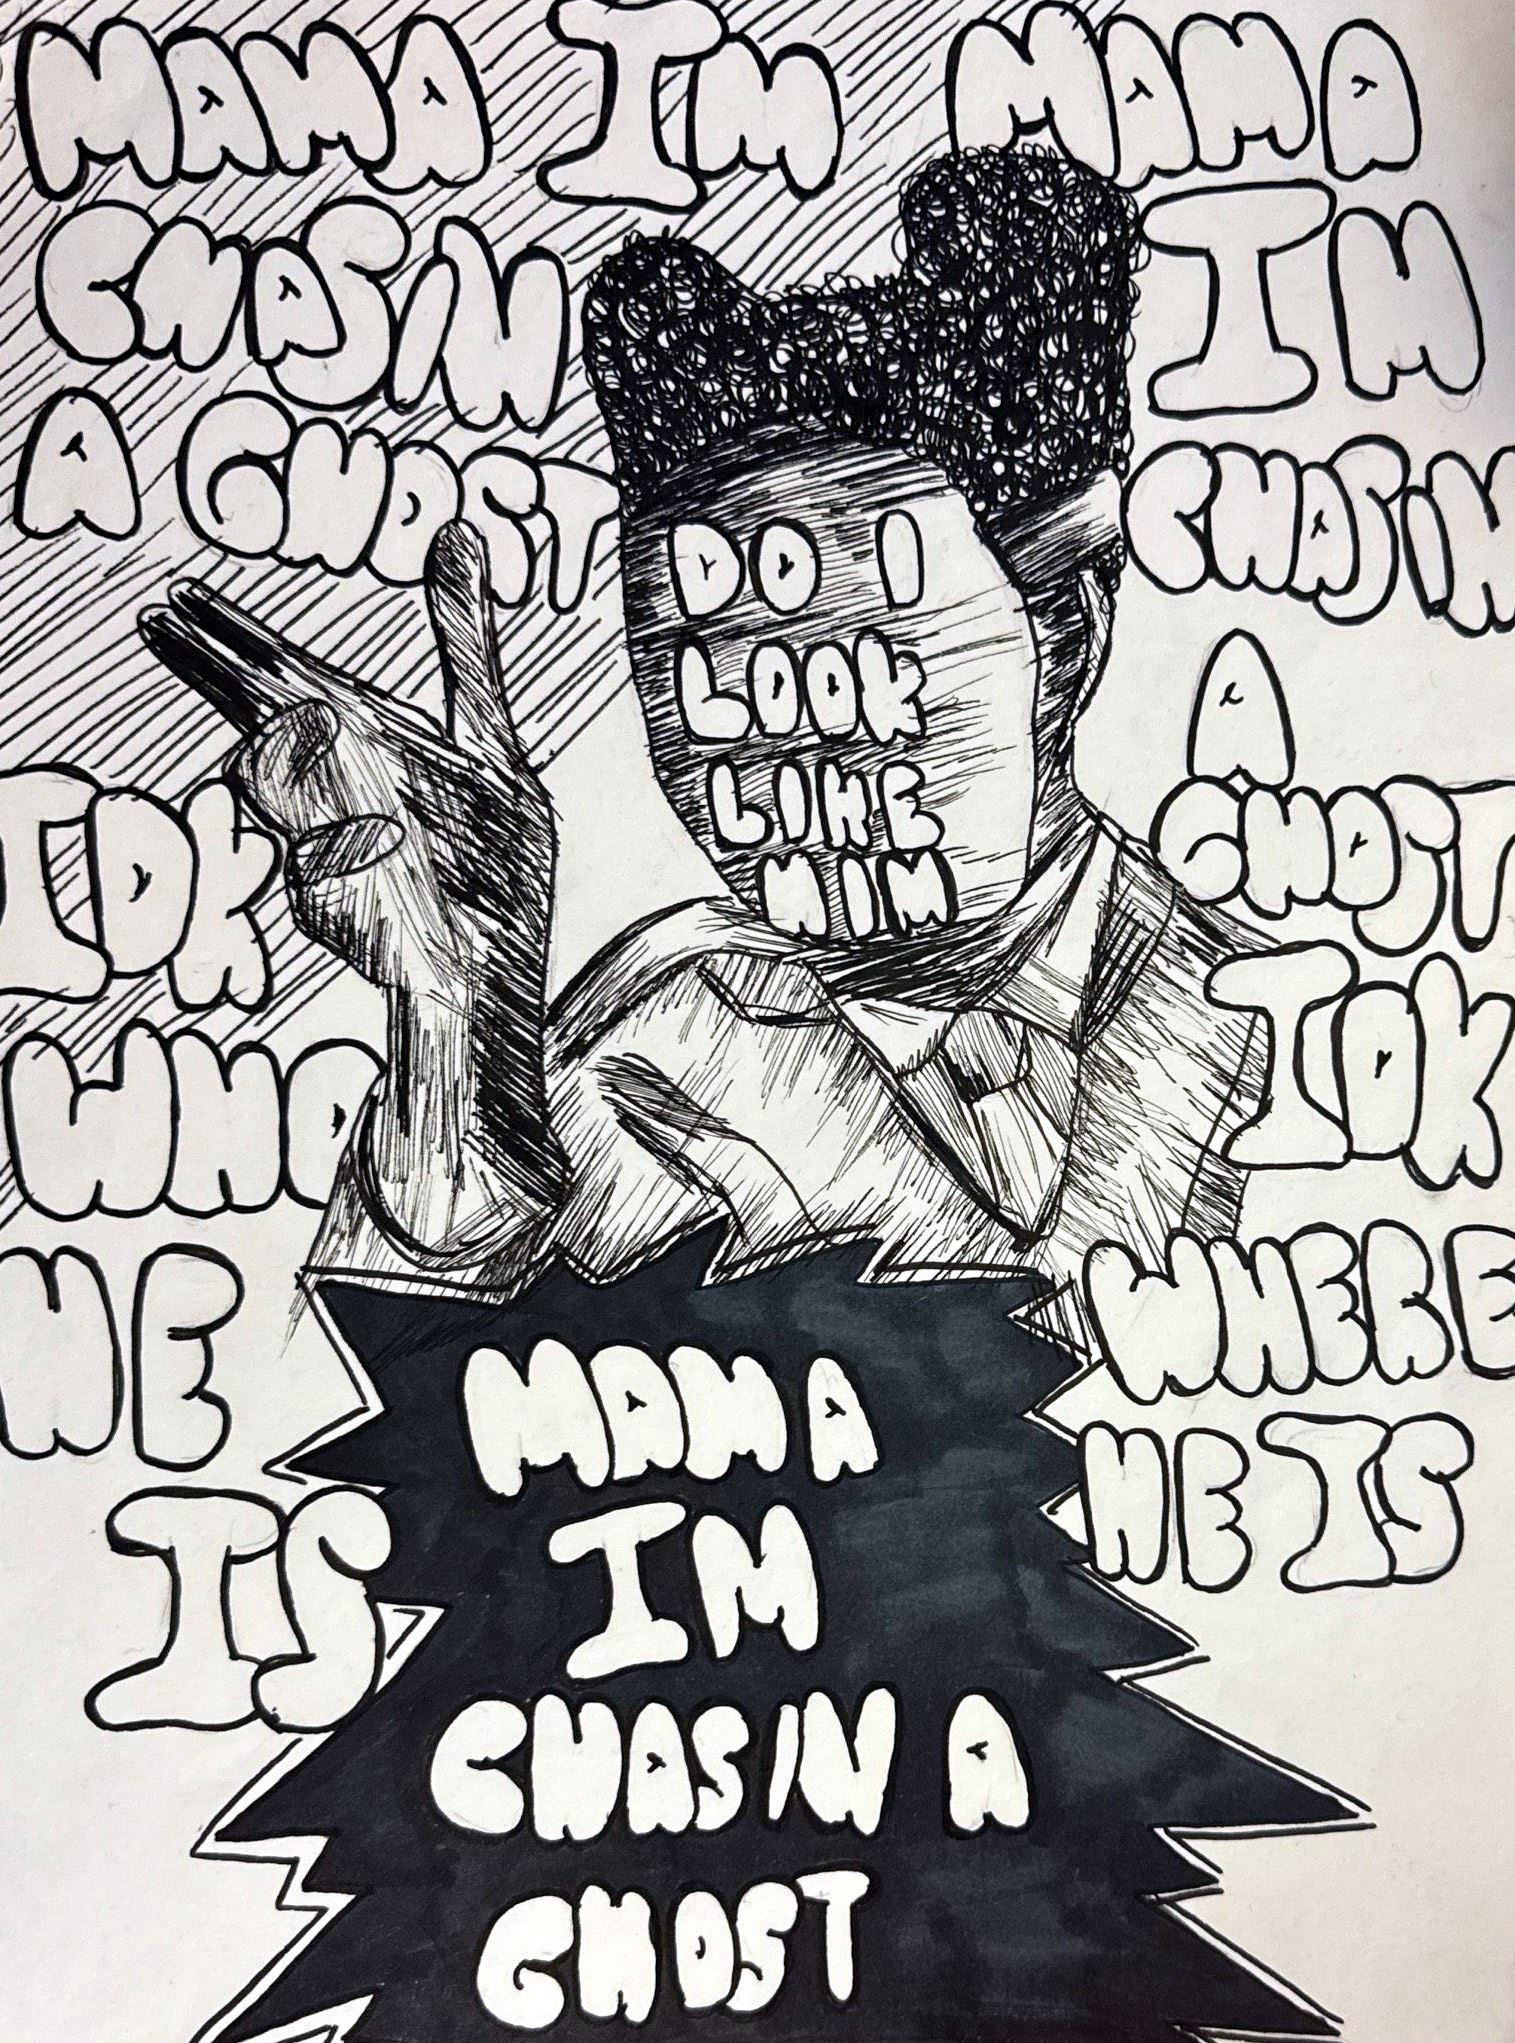 MAMA IM
CHASIN
A GHOST
IDK
WHO
HE
IS
MAMA
IM
CHASIN
A
GHOST
IDK
WHERE
HE IS
DO I
LOOK
LIKE
HIM
MAMA
IM
CHASIN A
GHOST